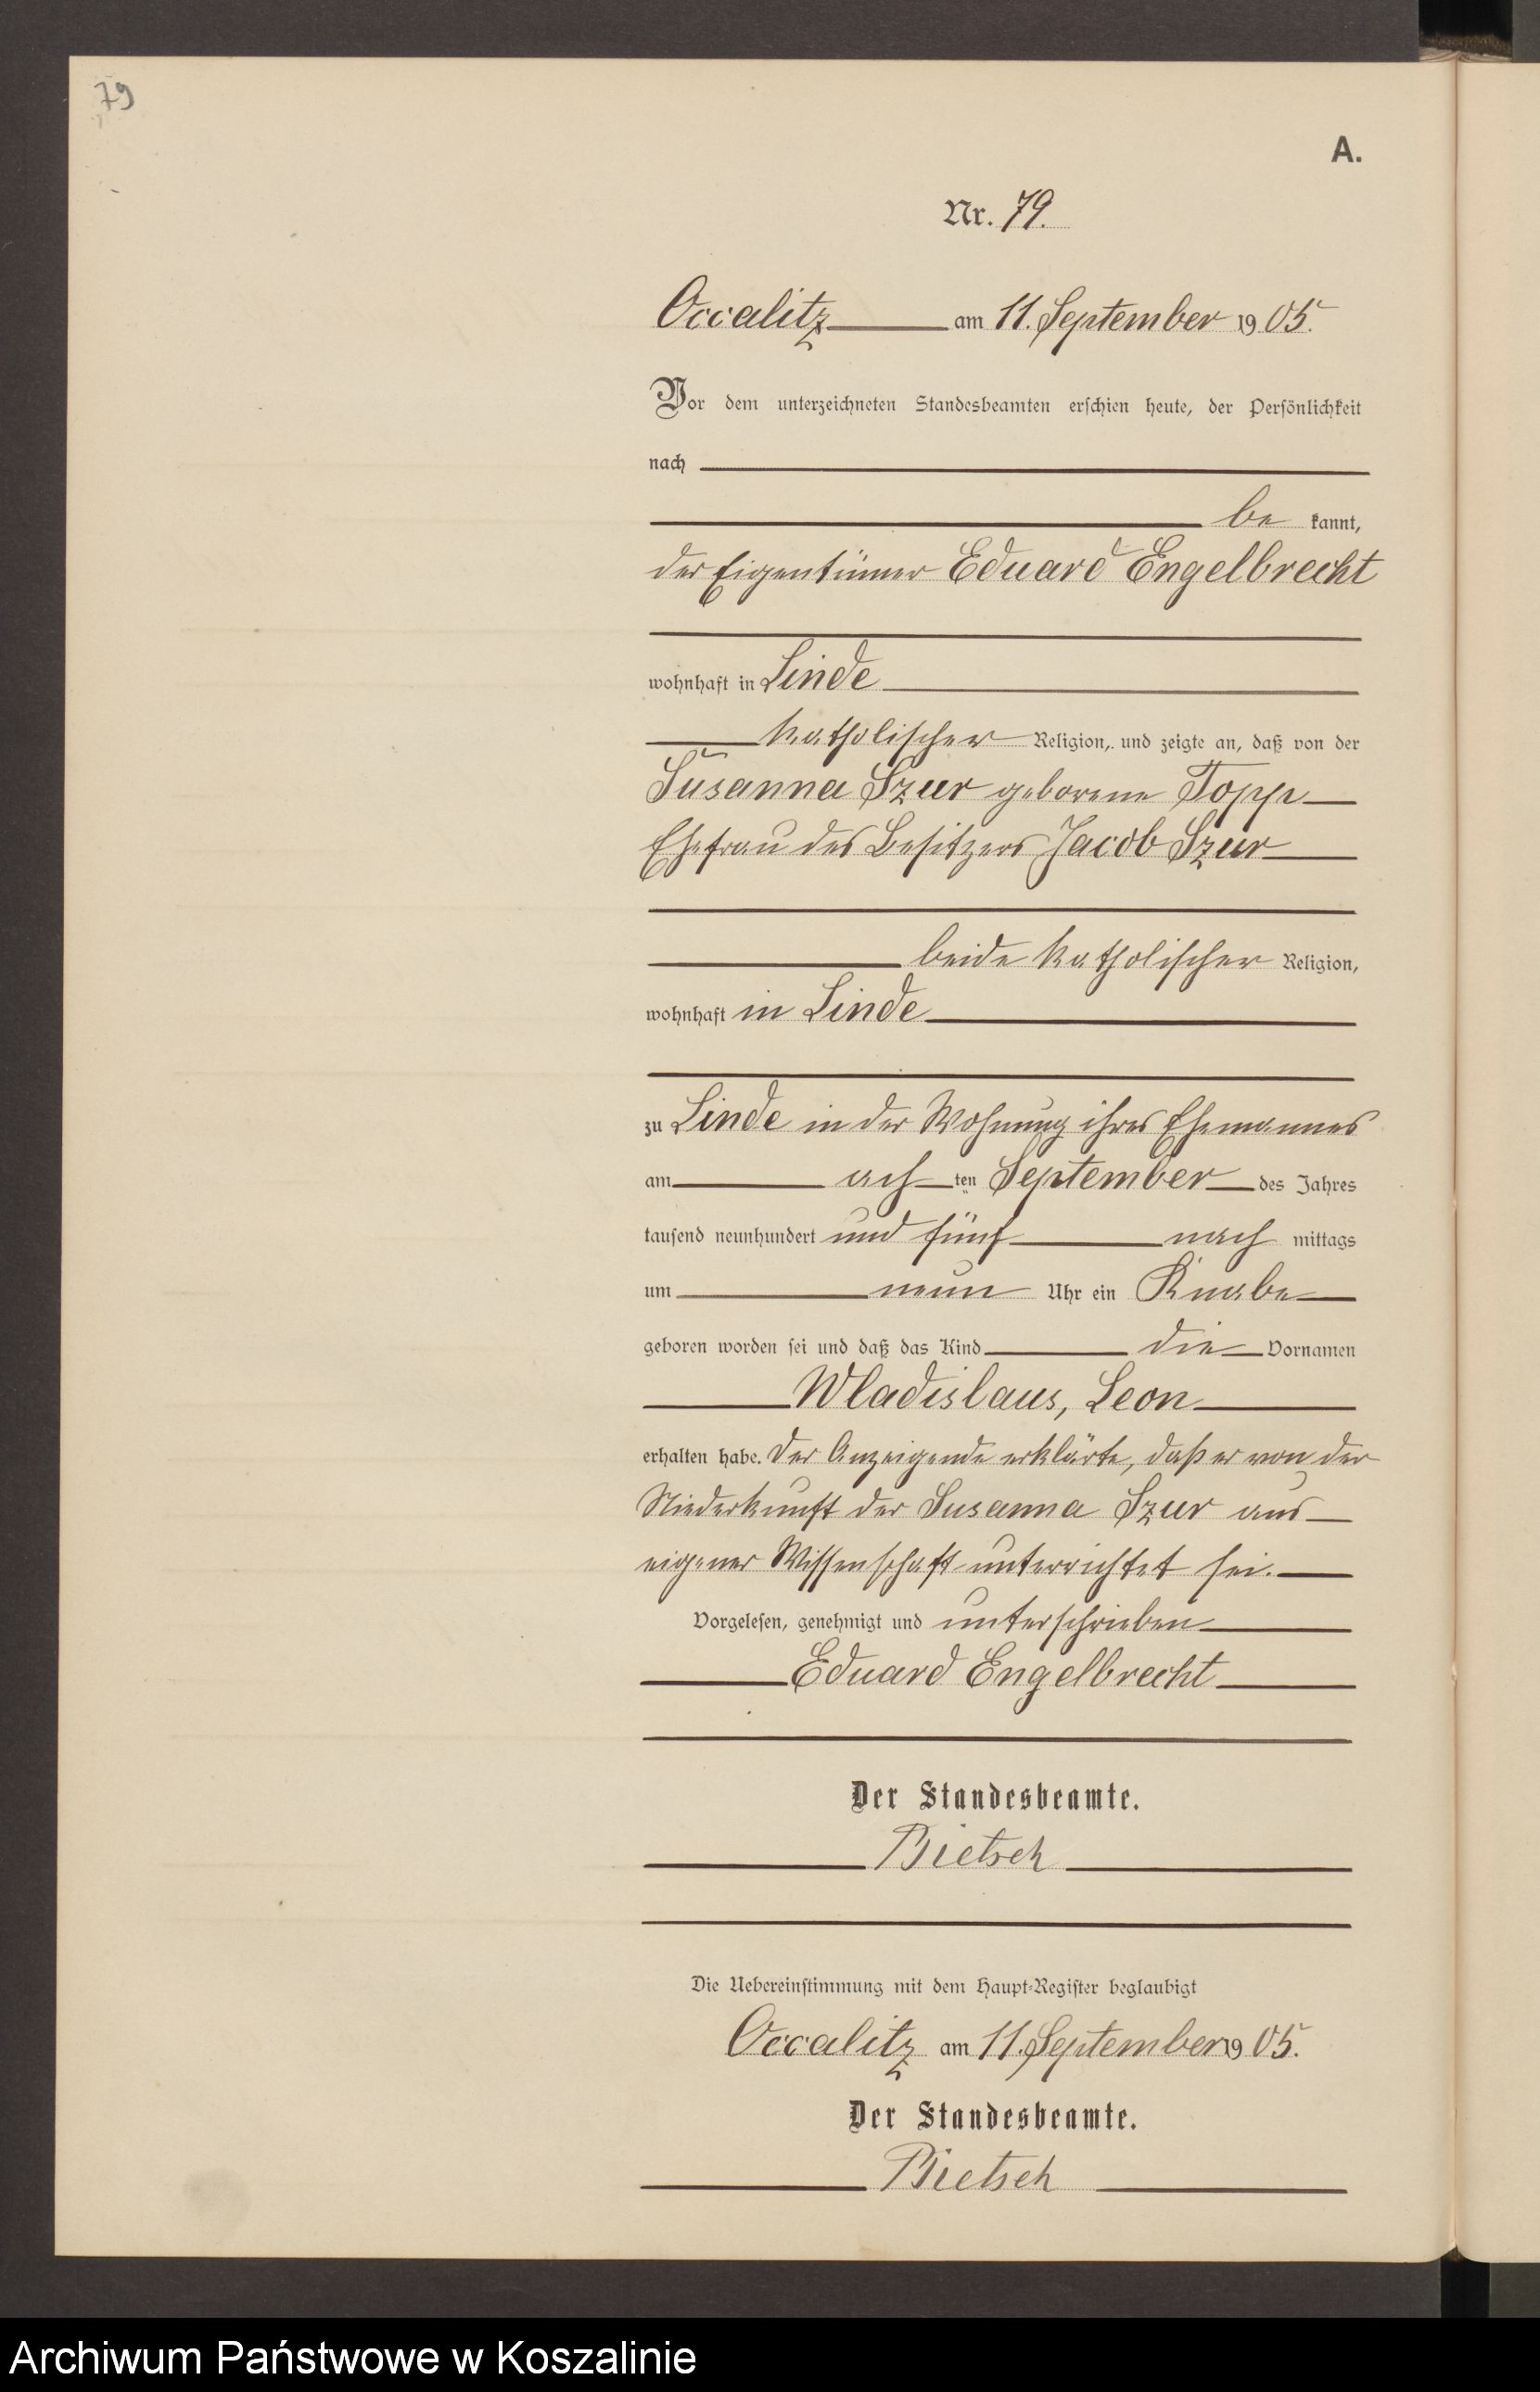 79
A.
Nr. 79.
Occalitz am 11. September 1905.
Vor dem unterzeichneten Standesbeamten erschien heute, der Persönlichkeit
nach
be kannt,
der Eigentümer Eduard Engelbrecht
wohnhaft in Linde
katholischer Religion, und zeigte an, daß von der
Susanna Szur geborene Topp
Ehefrau des Besitzers Jacob Szur
beide katholischer Religion,
wohnhaft in Linde
zu Linde in der Wohnung ihres Ehemannes
am ach ten September des Jahres
tausend neunhundert und fünf nach mittags
um neun Uhr ein Knabe
geboren worden sei und daß das Kind die Vornamen
Wladislaus, Leon
erhalten habe. Der Anzeigende erklärte, daß er von der
Niederkunft der Susanna Szur aus
eigener Wissenschaft unterrichtet sei.
Vorgelesen, genehmigt und unterschrieben
Eduard Engelbrecht
Der Standesbeamte.
Bietsch
Die Uebereinstimmung mit dem Haupt-Register beglaubigt
Occalitz am 11. September 1905.
Der Standesbeamte.
Bietsch
Archiwum Państwowe w Koszalinie